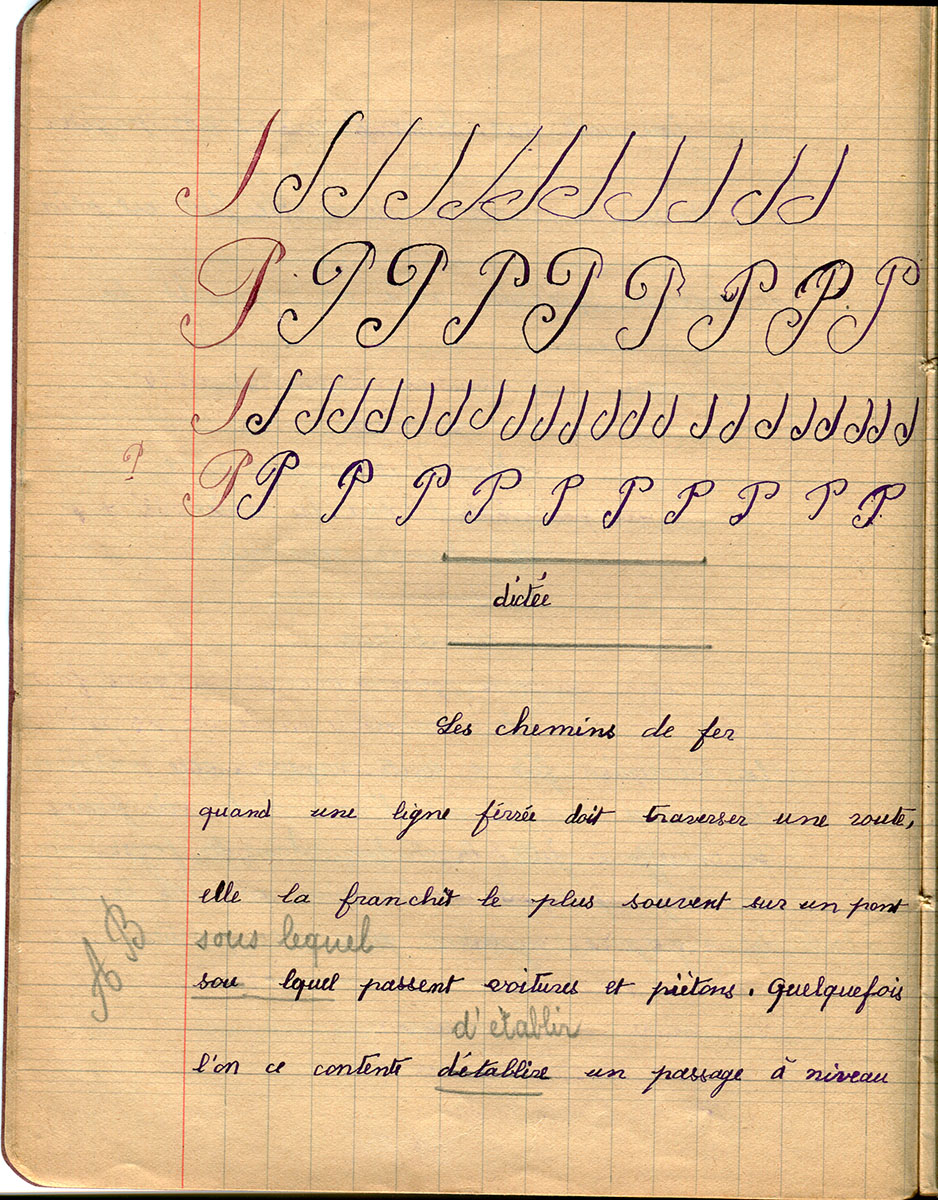 P P P P P P P P P
P
P P P P P P P P P P P
dictée
Les chemins de fer
quand une ligne férrée doit traverser une route,
elle la franchit le plus souvent sur un pont
sous lequel
sou lquel passent voitures et piètons. Quelquefois
d'établir
l'on ce contente d'établire un passage à niveau
AB